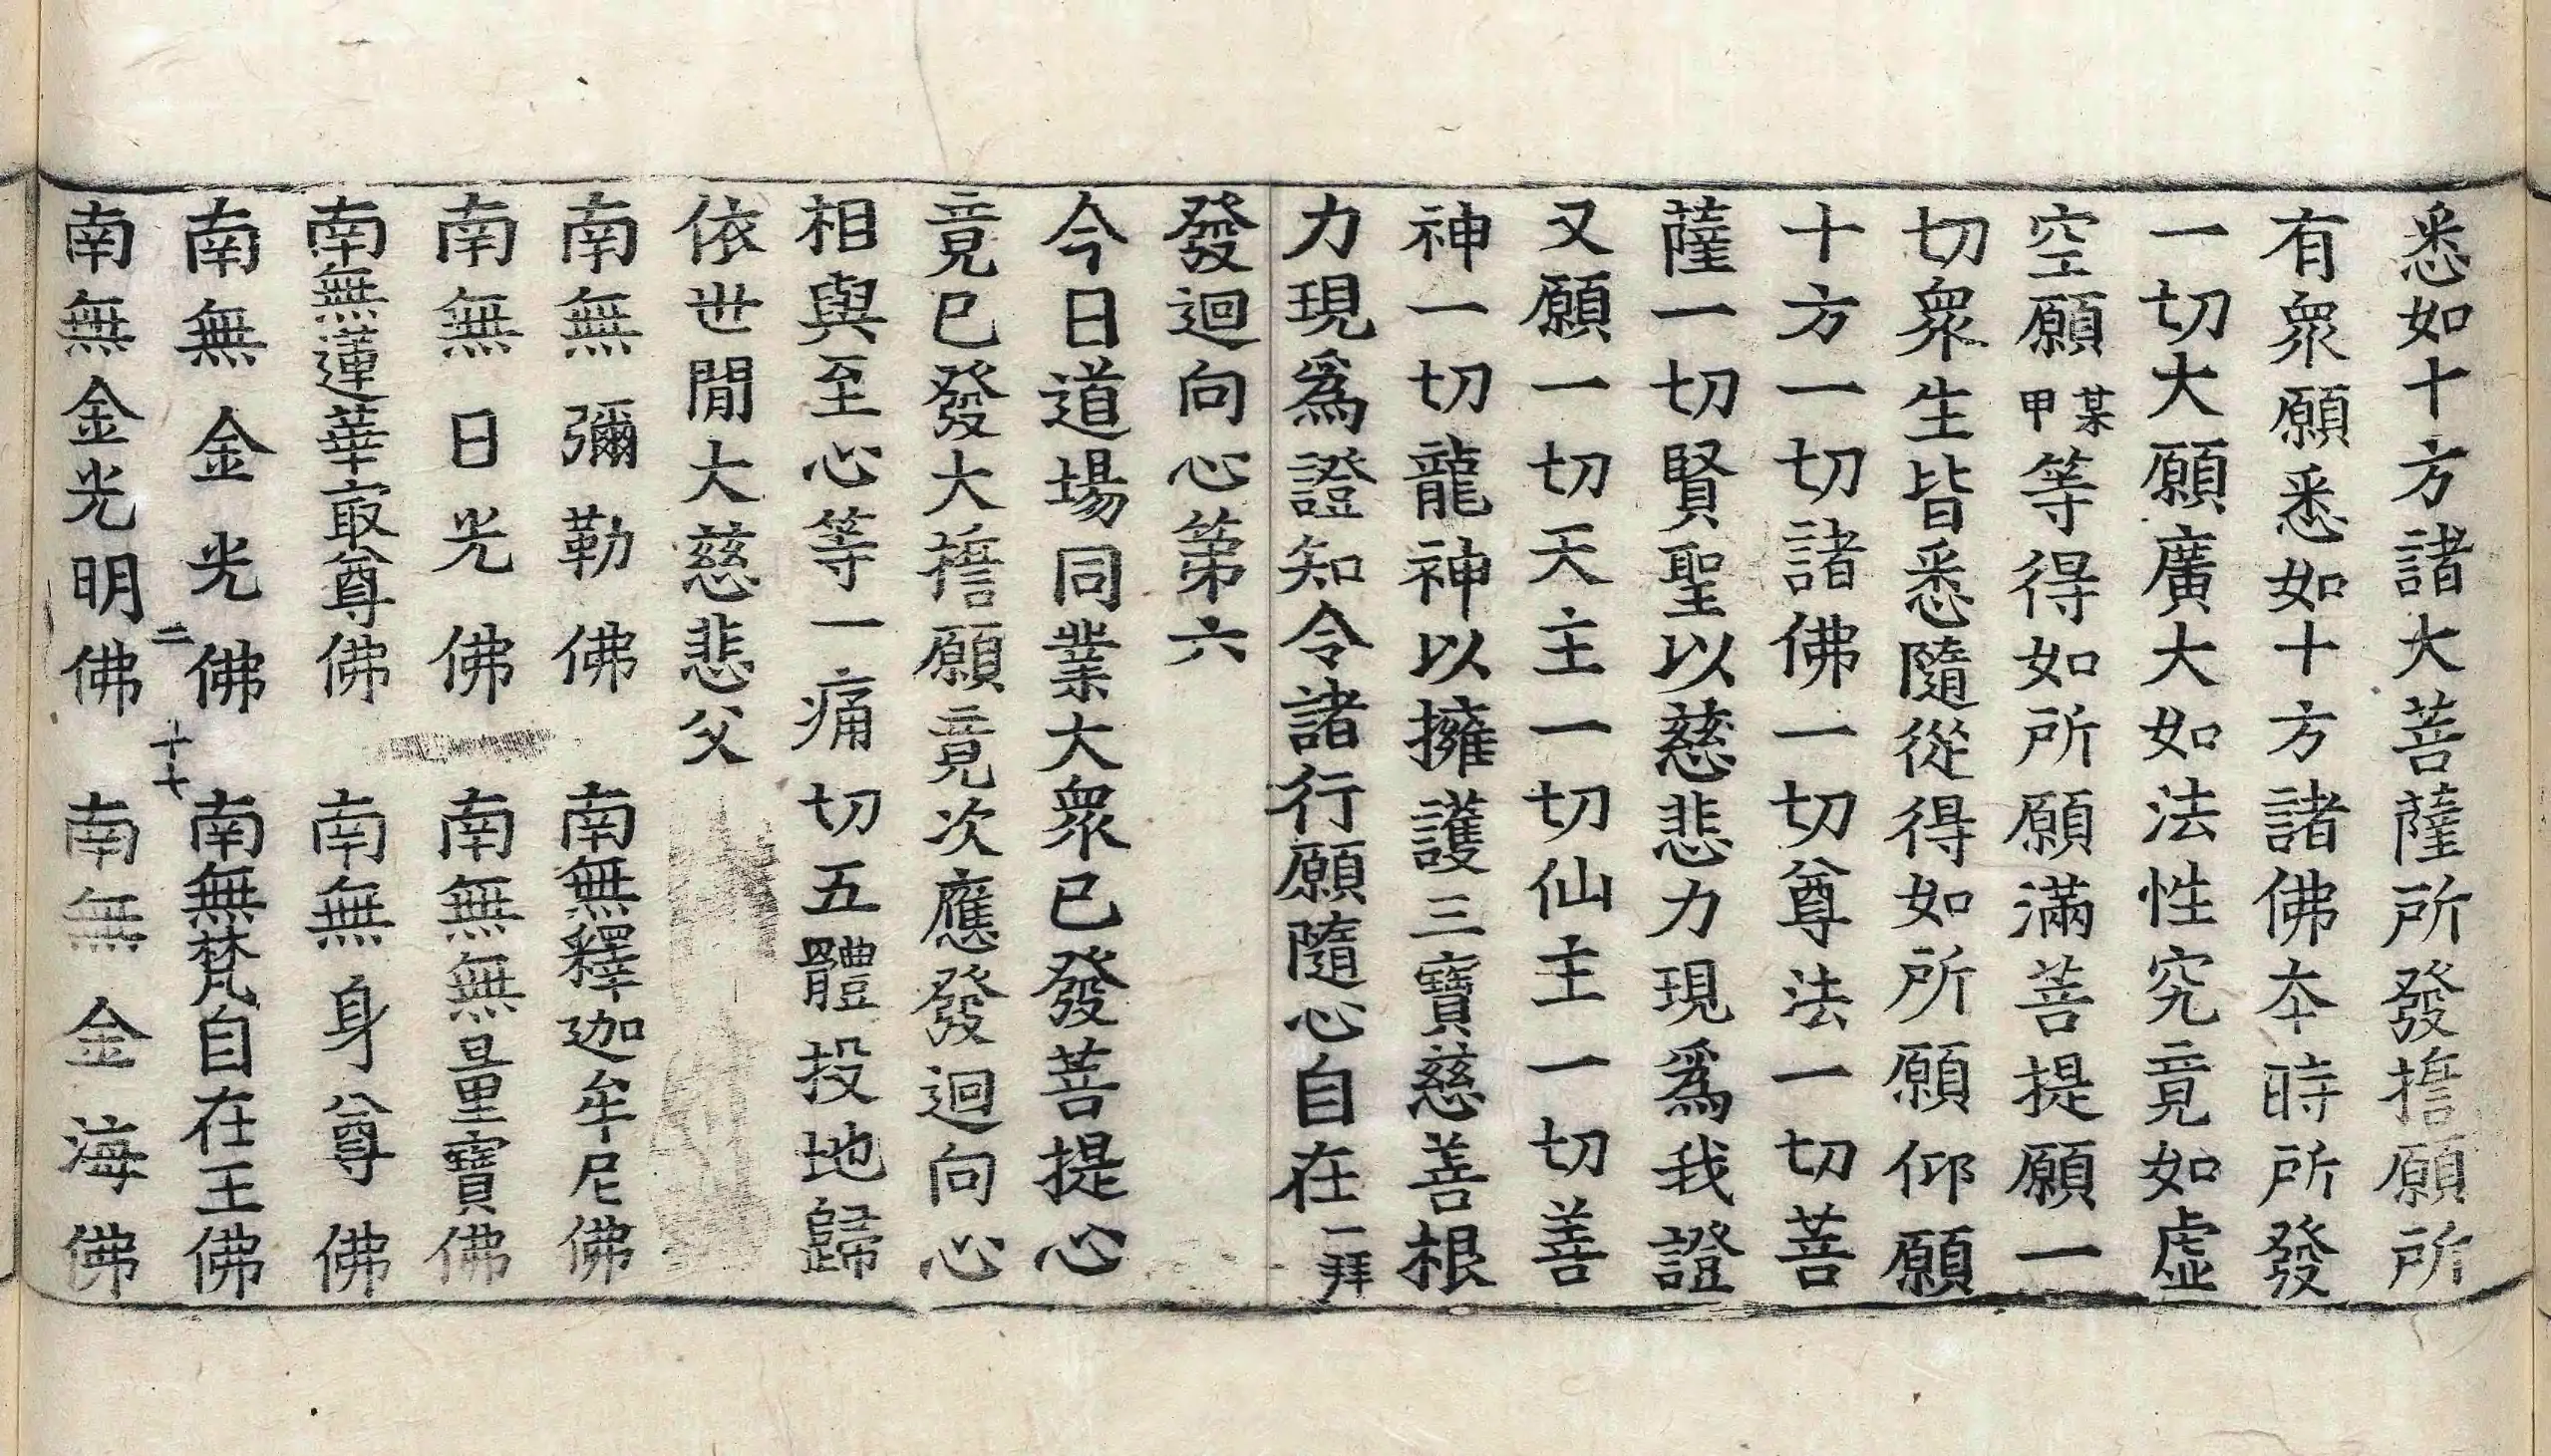 悉如十方諸大菩薩所發擔願所
有衆願悉如十方諸佛夲時所發
一切大願廣大如法性究竟如虛
空願某甲等得如所願滿菩提願一
切衆生皆悉隨從得如所願仰願
十方一切諸佛一切尊法一切菩
薩一切賢聖以慈悲力現爲我證
又願一切天主一切仙主一切善
神一切龍神以擁護三寶慈善根
力現爲證知令諸行願隨心自在一拜
發迴向心第六
今日道場同業大衆已發菩提心
竟已發大擔願竟次應發迴向心
相與至心等一痛切五體投地歸
依世閒大慈悲父
南無彌勒佛 南無釋迦牟尼佛
南無日光佛 南無無量寶佛
南無蓮華㝡尊佛 南無身尊佛
南無金光佛 南無梵自在王佛
二 十七
南無金光明佛 南無金海佛